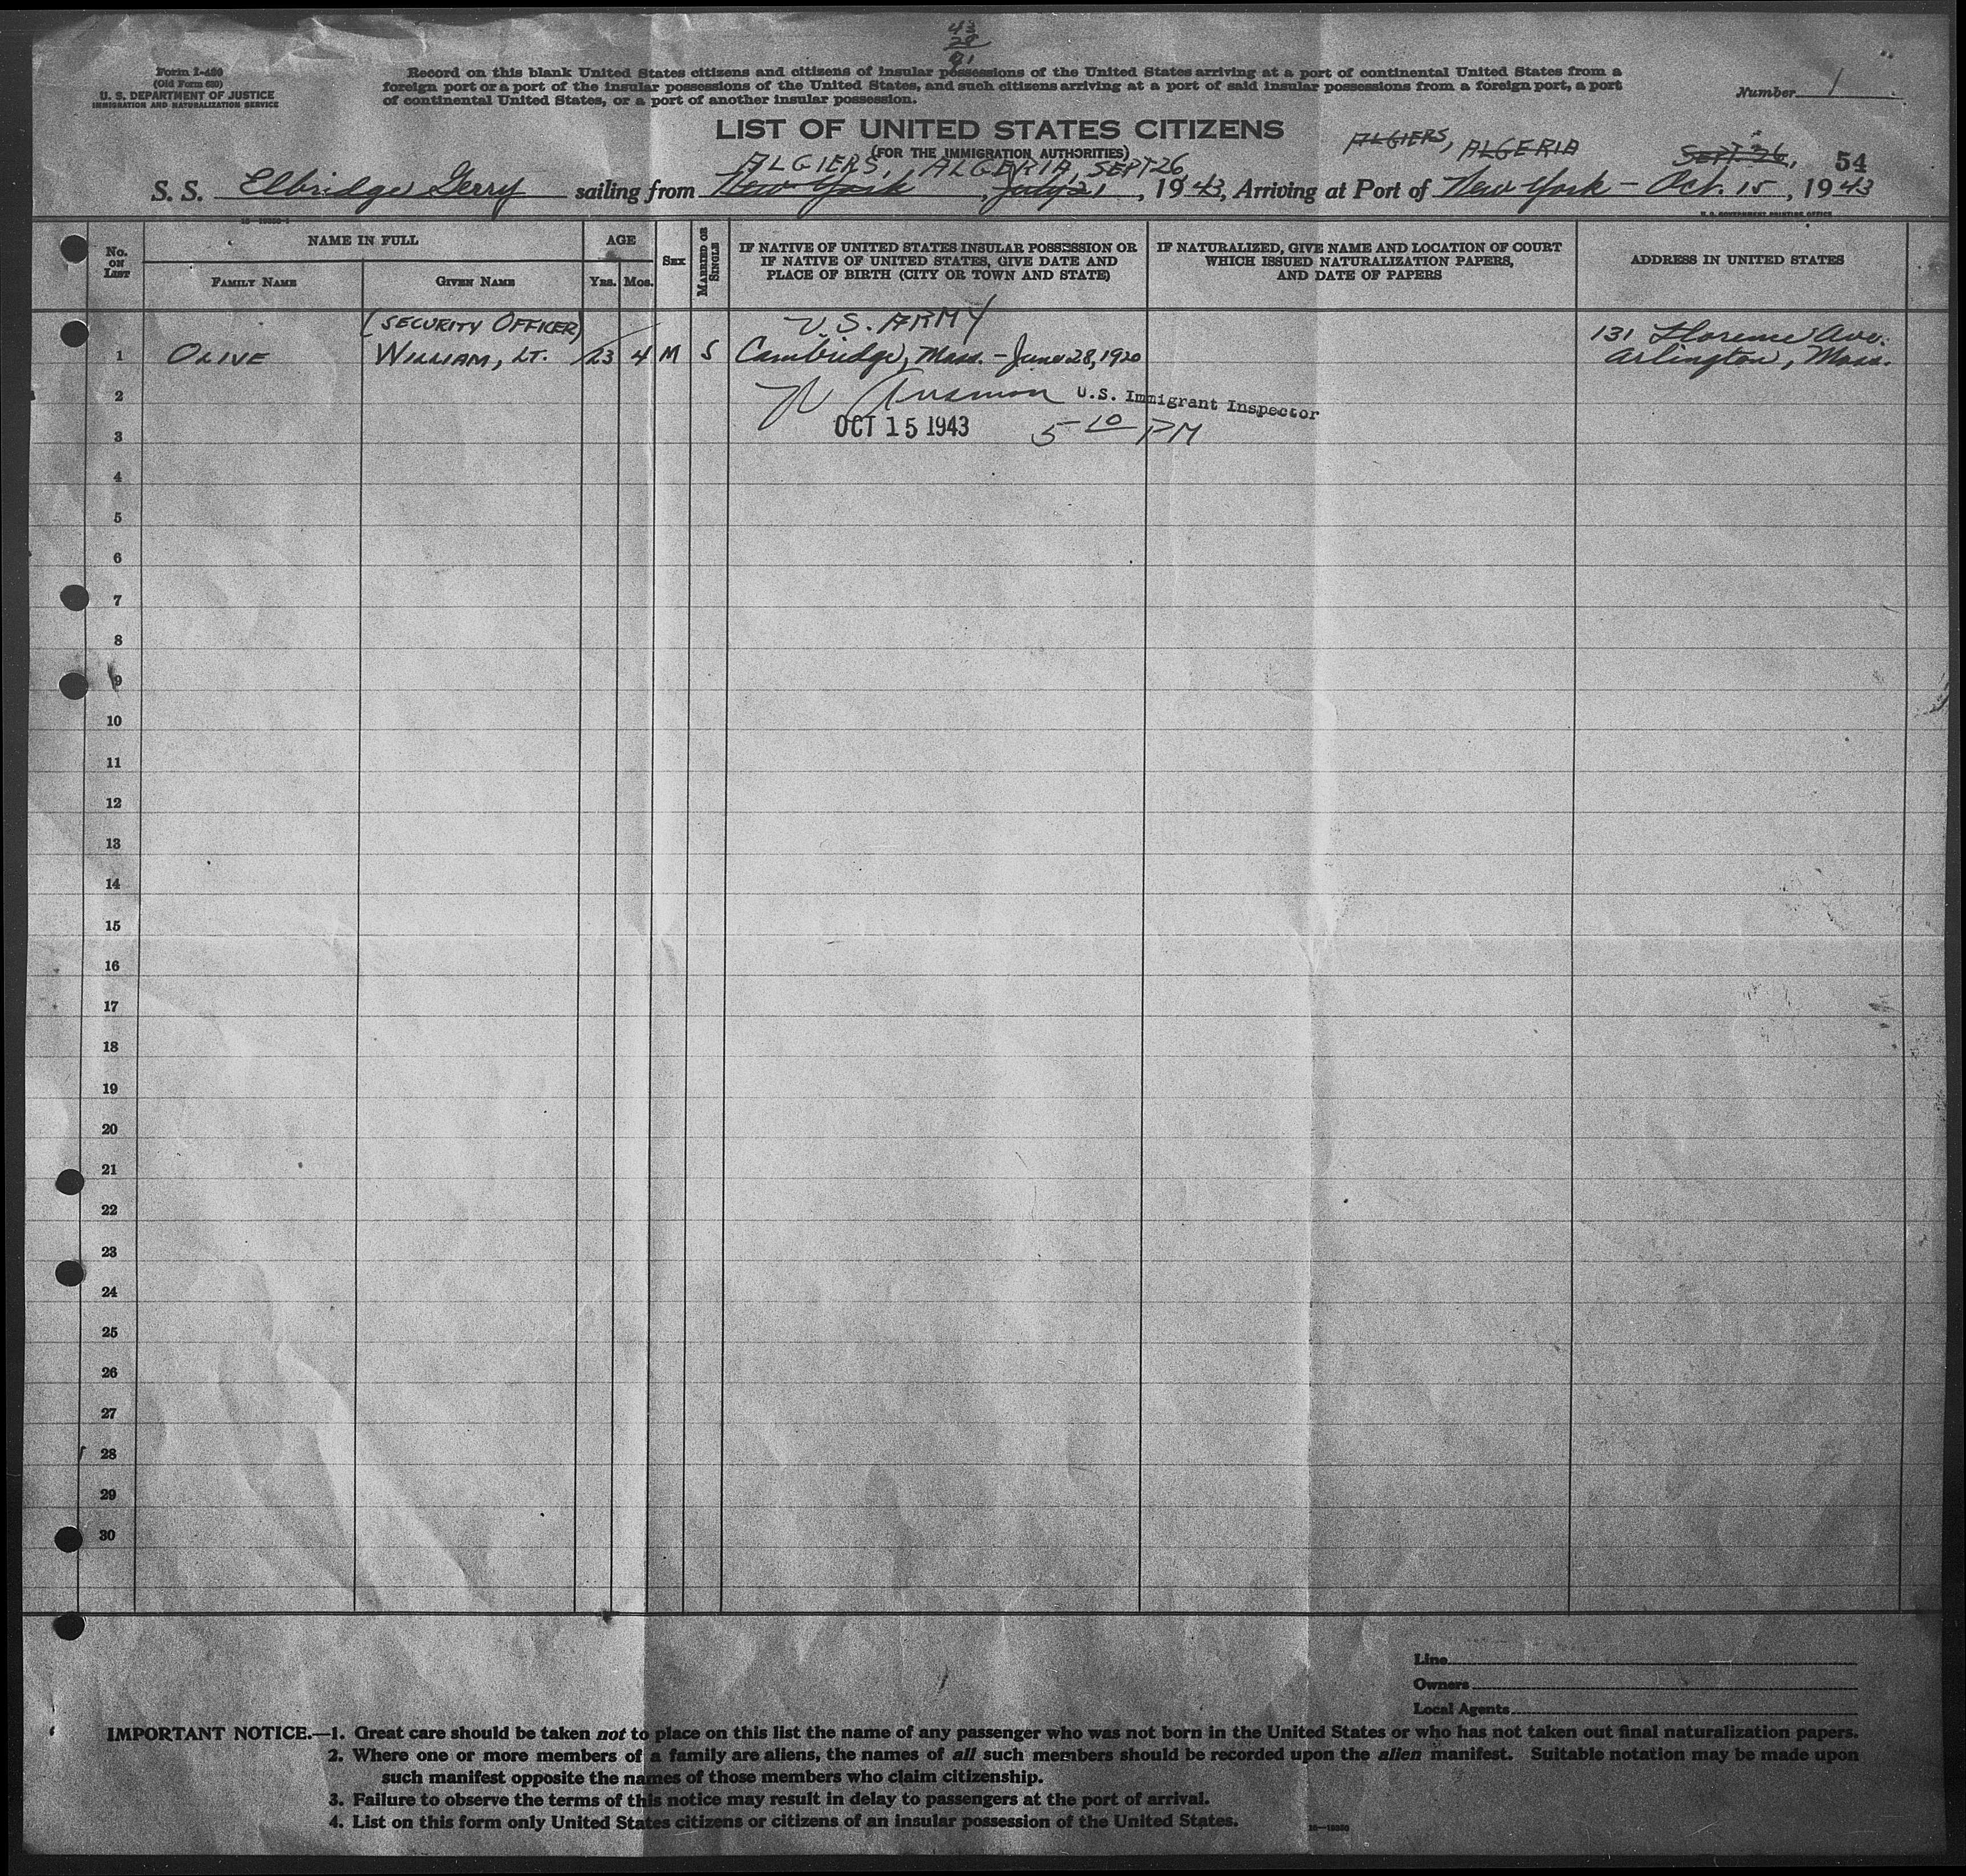 43
28
91
Form I-430
(Old Form 630)
U. S. DEPARTMENT OF JUSTICE
IMMIGRATION AND NATURALIZATION SERVICE
Record on this blank United States citizens and citizens of insular possessions of the United States arriving at a port of continental United States from a
foreign port or a port of the insular possessions of the United States, and such citizens arriving at a port of said insular possessions from a foreign port, a port
of continental United States, or a port of another insular possession.
Number 1
LIST OF UNITED STATES CITIZENS
(FOR THE IMMIGRATION AUTHORITIES)
ALGIERS, ALGERIA SEPT. 26, 54
ALGIERS, ALGERIA, SEPT 26
S. S. Elbridge Gerry sailing from New York, July 21, 1943, Arriving at Port of New York - Oct. 15, 1943
U. S. GOVERNMENT PRINTING OFFICE
No. ON LIST
NAME IN FULL
FAMILY NAME
GIVEN NAME
AGE
YRS. MOS.
SEX
MARRIED OR SINGLE
IF NATIVE OF UNITED STATES INSULAR POSSESSION OR
IF NATIVE OF UNITED STATES, GIVE DATE AND
PLACE OF BIRTH (CITY OR TOWN AND STATE)
IF NATURALIZED, GIVE NAME AND LOCATION OF COURT
WHICH ISSUED NATURALIZATION PAPERS,
AND DATE OF PAPERS
ADDRESS IN UNITED STATES
(SECURITY OFFICER) U.S. ARMY 131 Florence Ave.
1 OLIVE WILLIAM, LT. 23 4 M S Cambridge, Mass. - June 28, 1920 Arlington, Mass.
2 U.S. Immigrant Inspector
3 OCT 15 1943 5 10 PM
4
5
6
7
8
9
10
11
12
13
14
15
16
17
18
19
20
21
22
23
24
25
26
27
28
29
30
Line
Owners
Local Agents
IMPORTANT NOTICE.—1. Great care should be taken not to place on this list the name of any passenger who was not born in the United States or who has not taken out final naturalization papers.
2. Where one or more members of a family are aliens, the names of all such members should be recorded upon the alien manifest. Suitable notation may be made upon
such manifest opposite the names of those members who claim citizenship.
3. Failure to observe the terms of this notice may result in delay to passengers at the port of arrival.
4. List on this form only United States citizens or citizens of an insular possession of the United States.